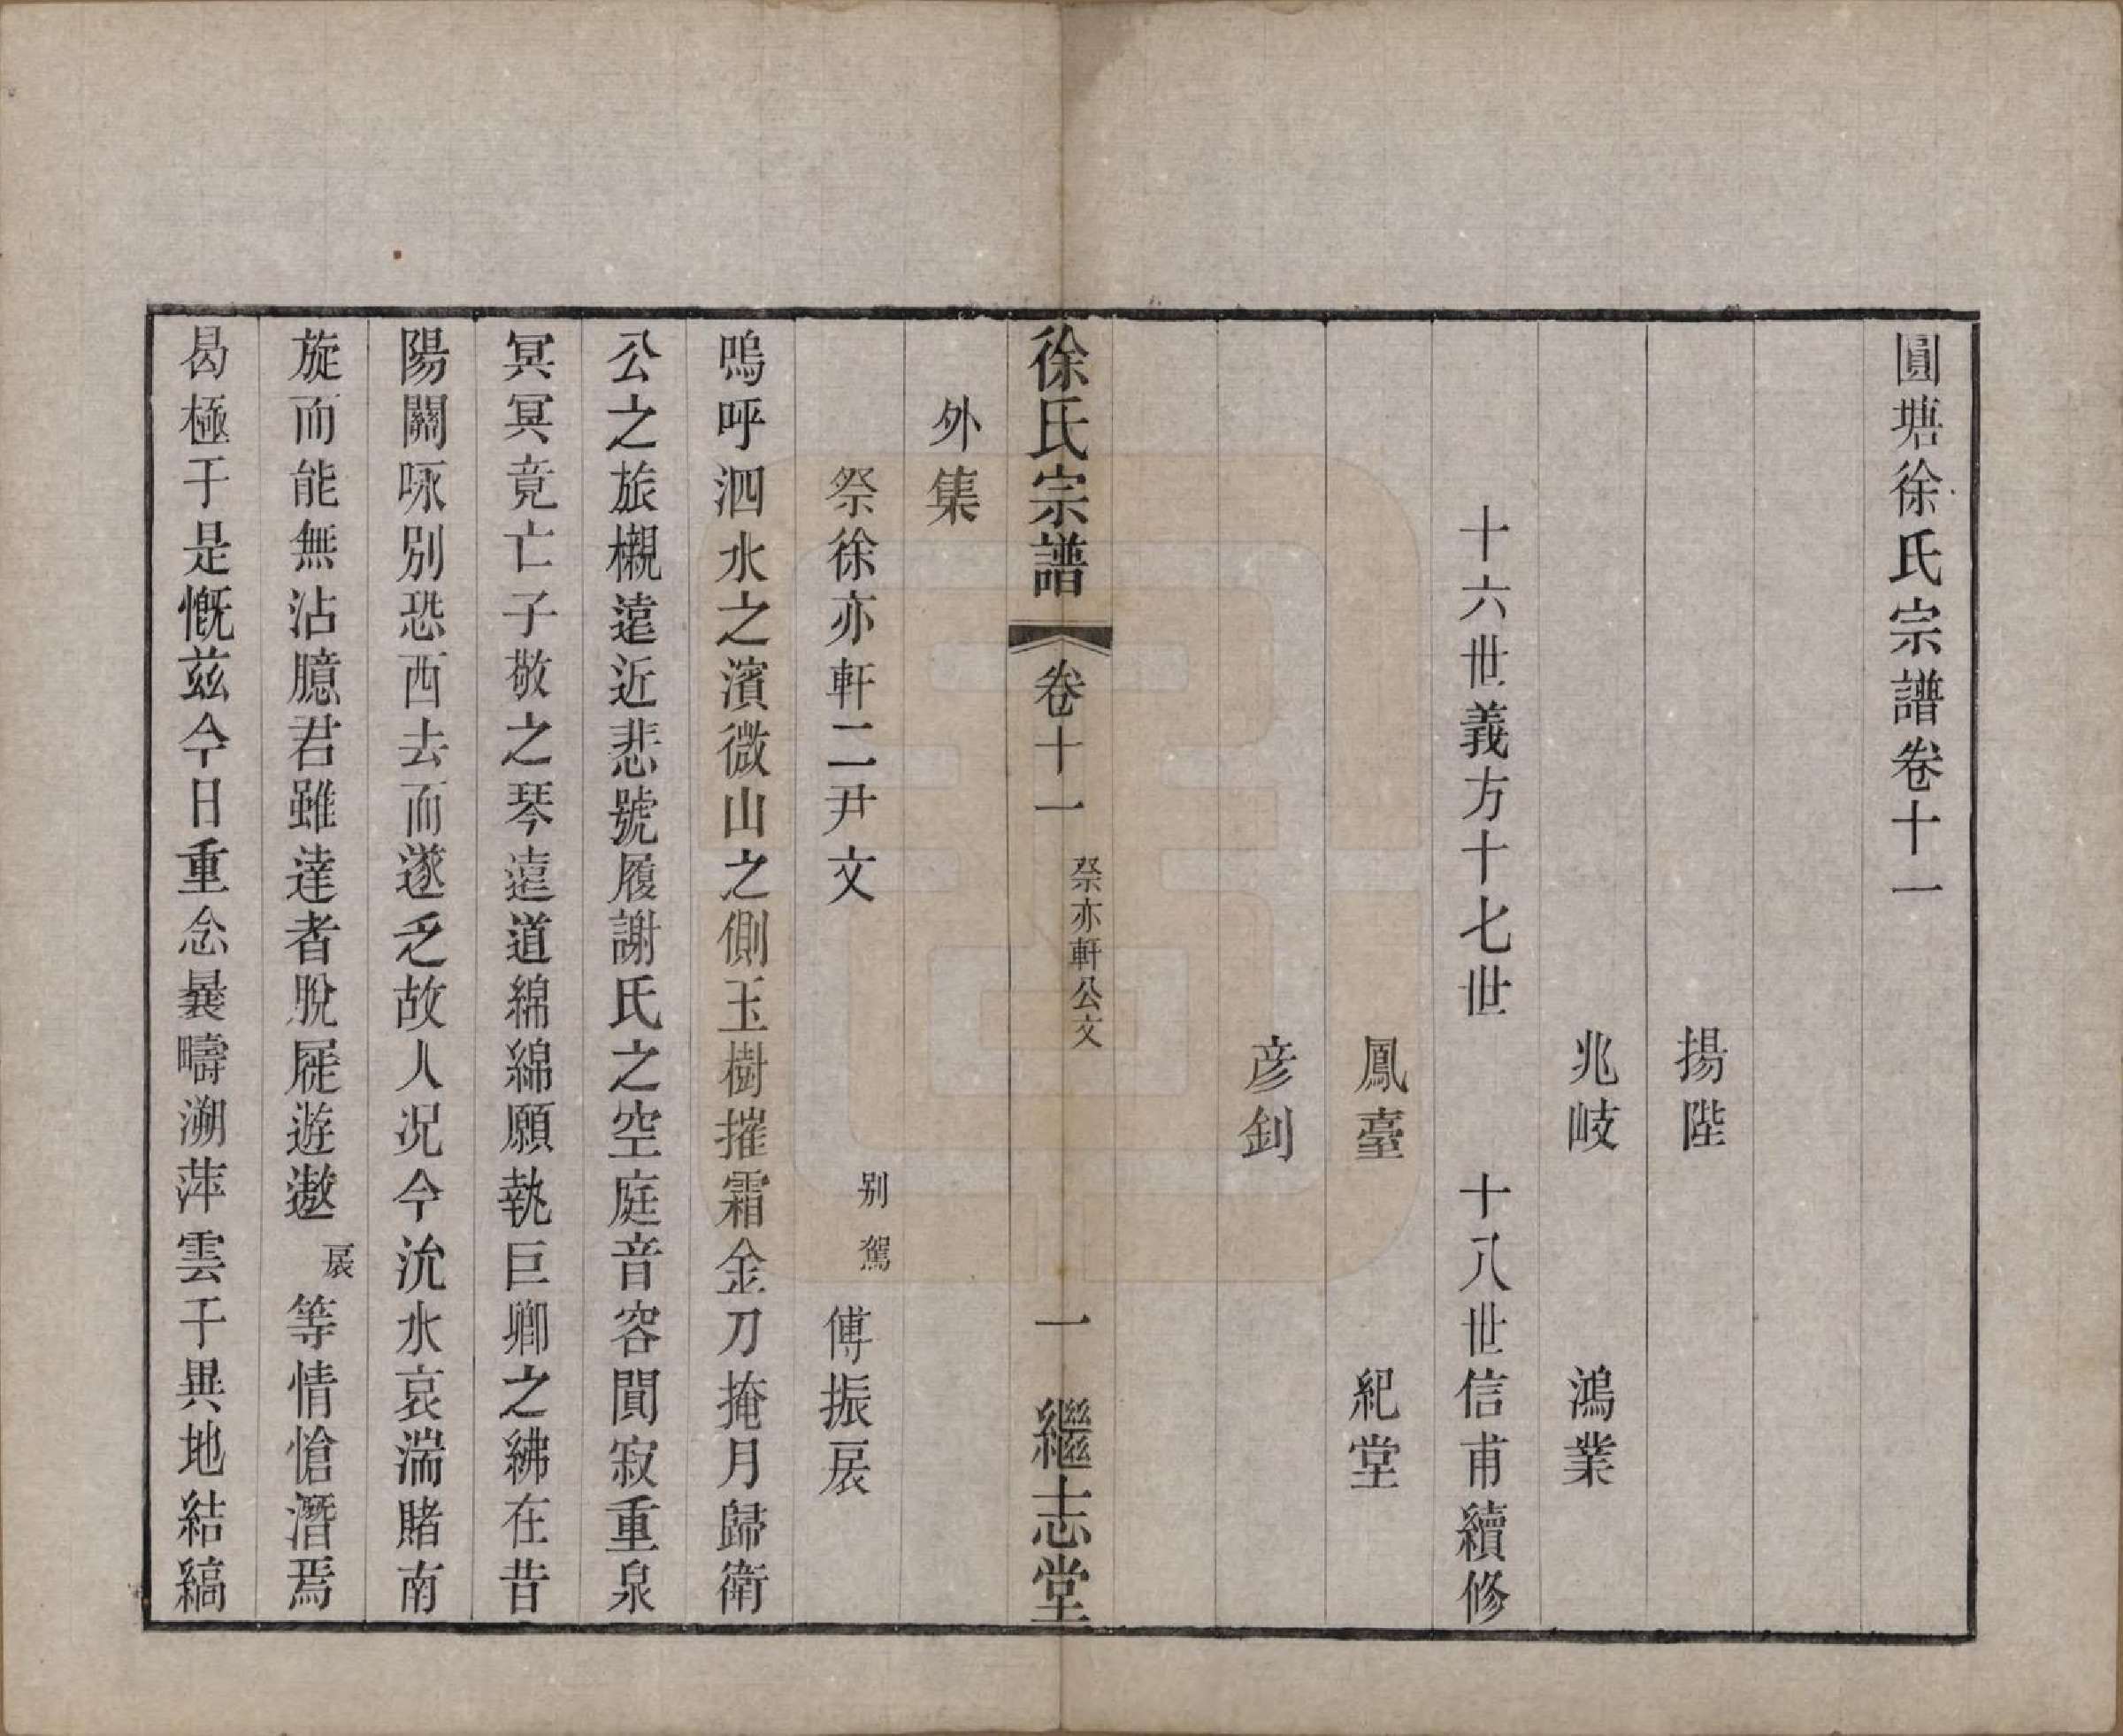 圓塘徐氏宗譜卷十一
揚陞
兆岐　鴻業
十六世義方十七世　十八世信甫續修
鳳臺　紀堂
彥釗
徐氏宗譜　卷十一　祭亦軒公文　一　繼志堂
外集
祭徐亦軒二尹文　別駕　傅振扆
嗚呼泗水之濱微山之側玉樹摧霜金刀掩月歸衛
公之旅櫬遠近悲號履謝氏之空庭音容闃寂重泉
冥冥竟亡子敬之琴遠道綿綿願執巨卿之紼在昔
陽關咏別恐西去而遂乏故人况今沇水哀湍賭南
旋而能無沾臆君雖達者脫屣遊遨扆等情愴潛焉
曷極于是慨兹今日重念曩疇溯萍雲于異地結縞